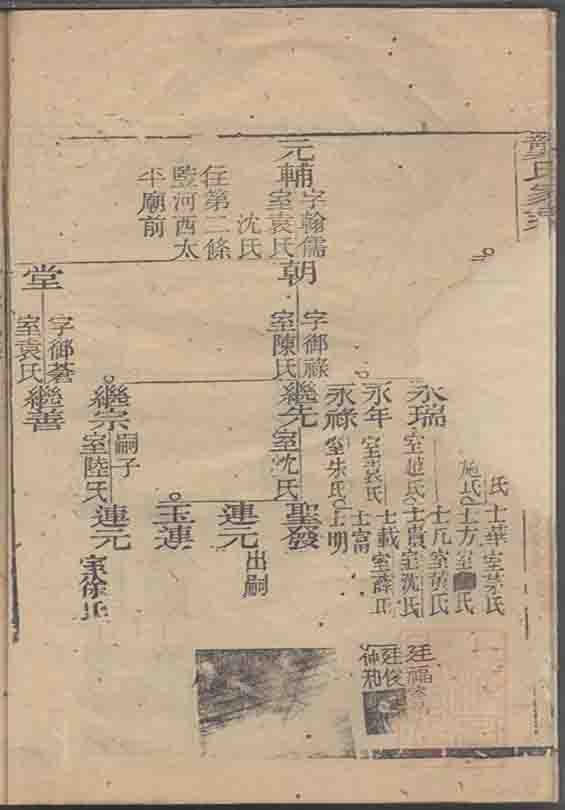 氏家
元輔
字翰儒
室袁氏
沈氏
住第二條
豎河西太
平廟前
朝
字御祿
室陳氏
堂
字御蒼
室袁氏
永瑞
永年
永祿
室朱氏
繼先
室沈氏
繼宗
嗣子
室陸氏
繼善
氏
士華
室茅氏
施氏
士方
室 氏
士凡
室黃氏
士貴
室沈氏
士載
室薛氏
士富
士明
聖發
連元
出嗣
玉連
連元
室徐氏
廷福
廷俊
仲和